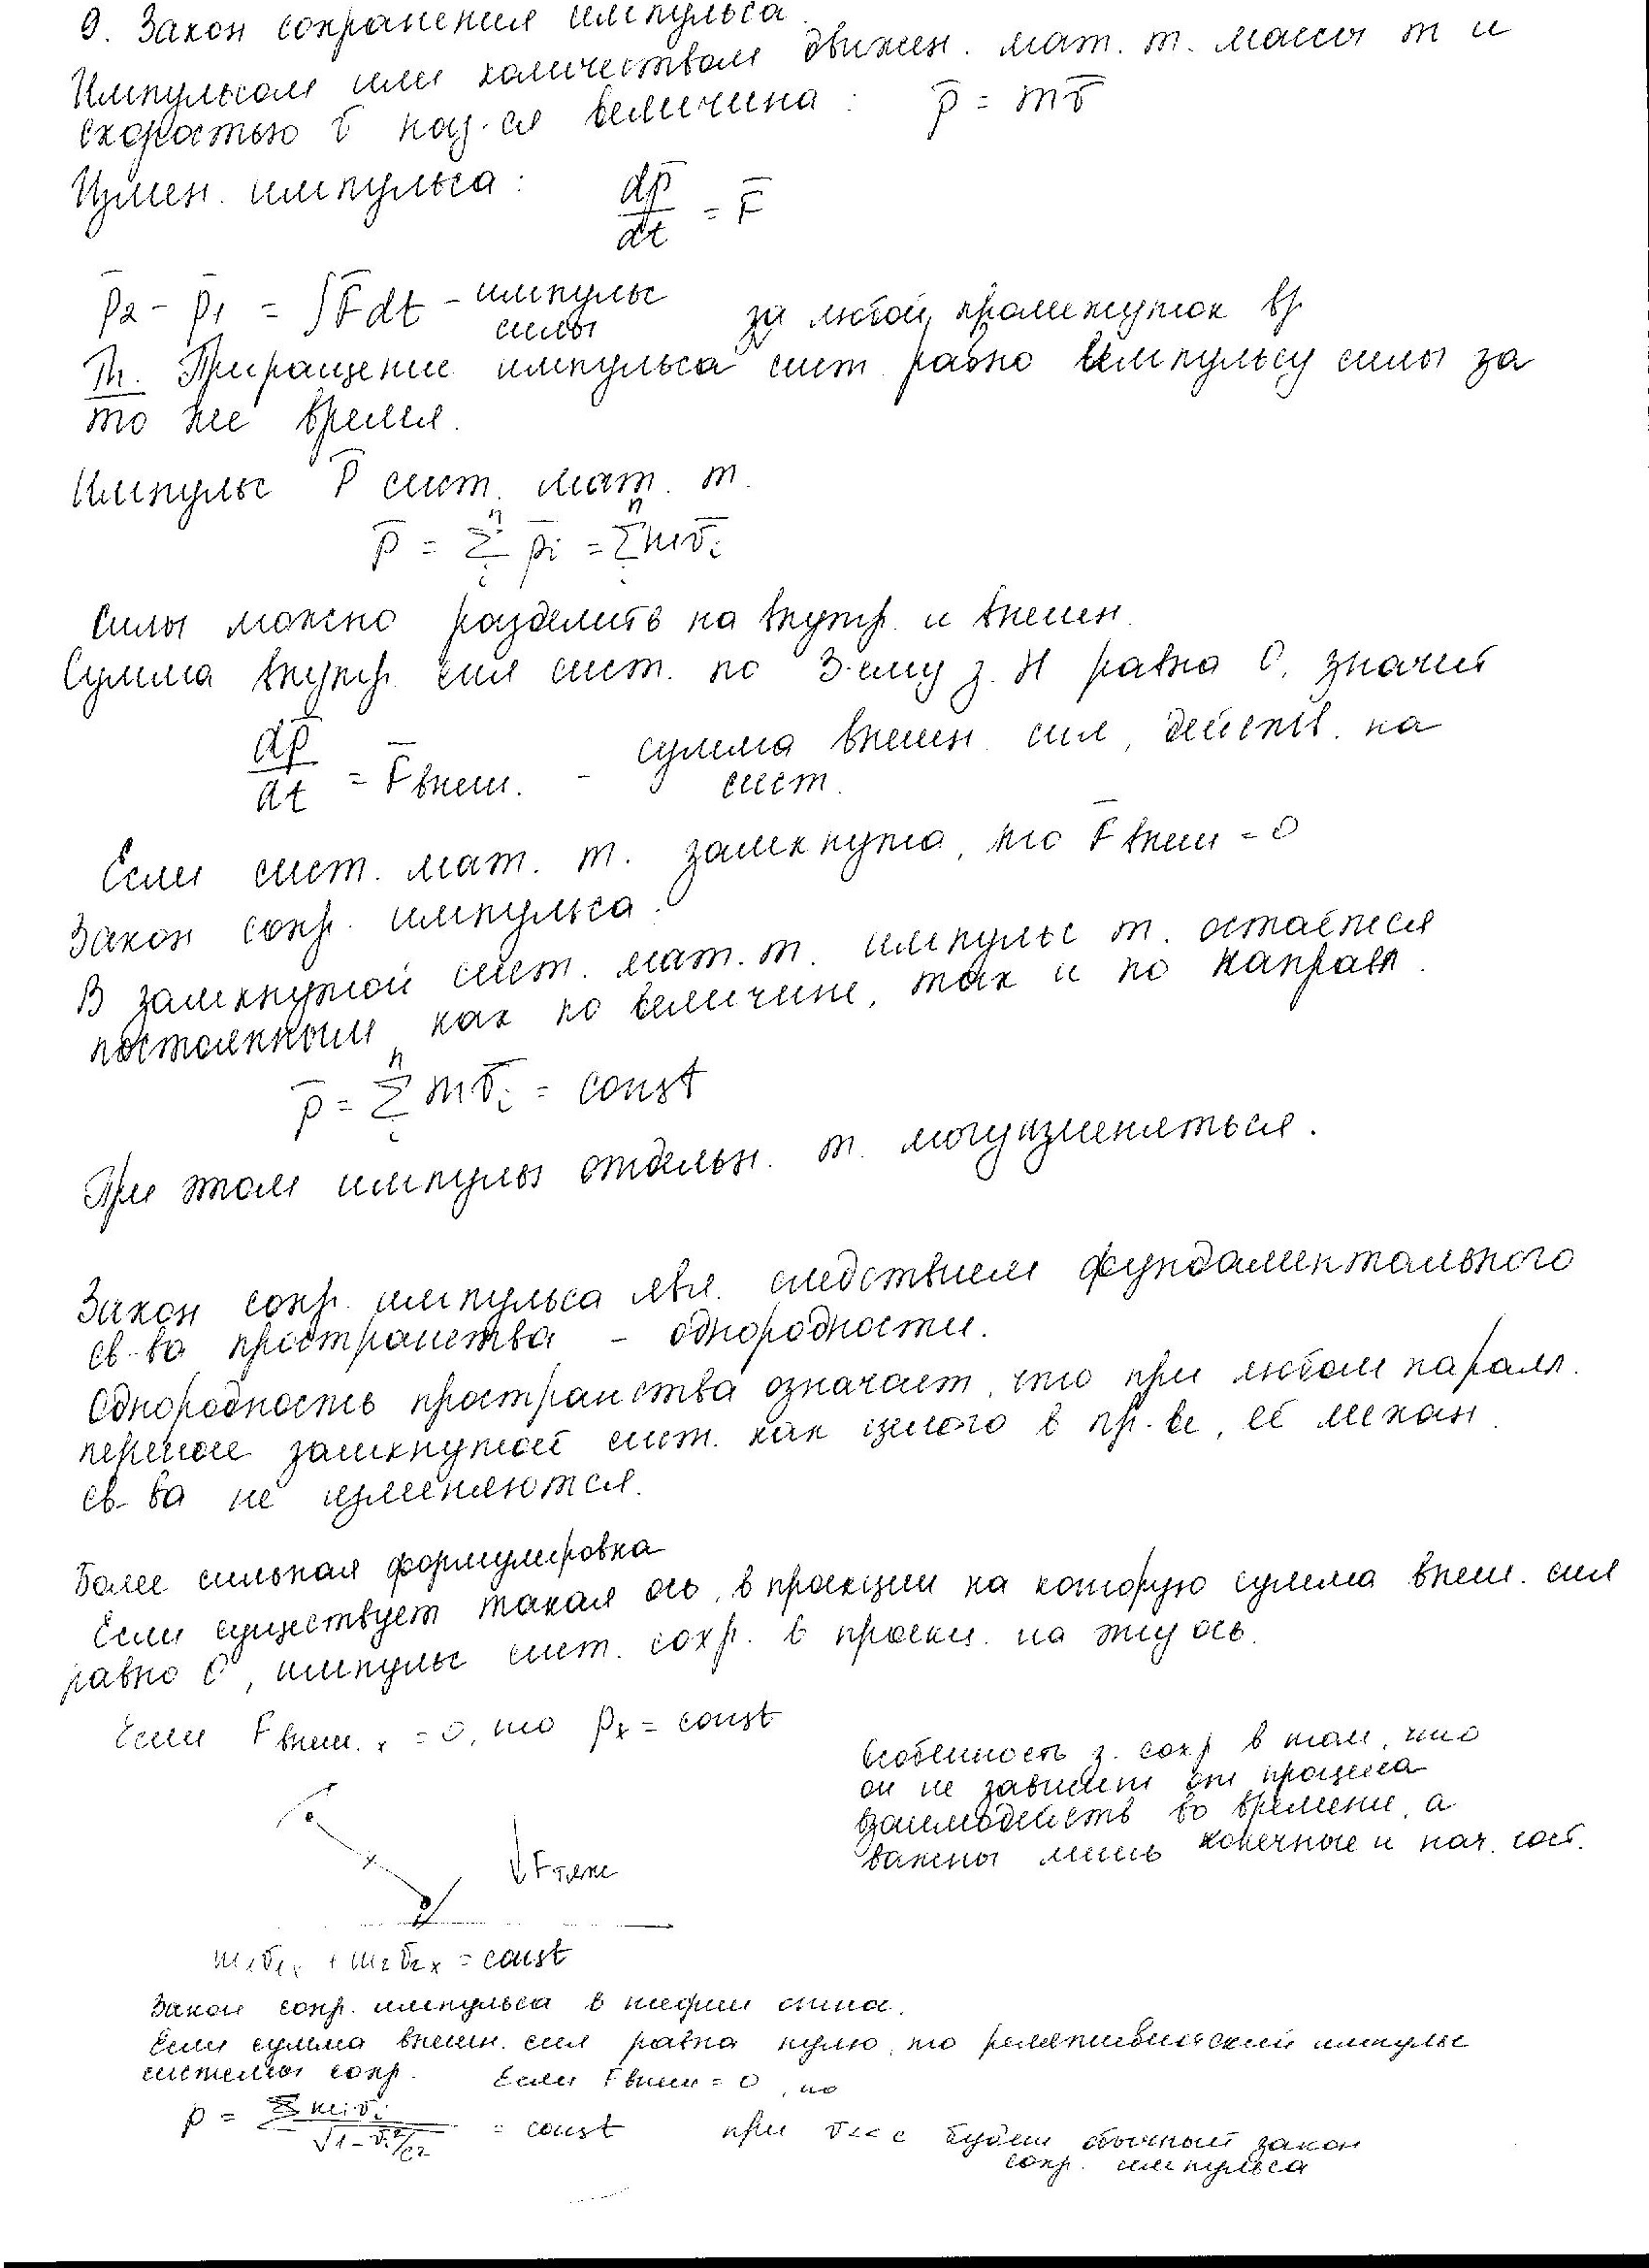 9. Закон сохранения импульса.
Импульсом или количеством движен. мат. т. массы m и
скоростью v̄ наз-ся величина: p̄ = mv̄
Измен. импульса: dp̄/dt = F̄
p̄2 - p̄1 = ∫F̄dt - импульс силы за любой промежуток вр.
Th. Приращение импульса сист. равно импульсу силы за
то же время.
Импульс P̄ сист. мат. т.
p̄ = Σᵢⁿ p̄i = Σᵢⁿ mv̄i
Силы можно разделить на внутр. и внешн.
Сумма внутр. сил сист. по 3-ему з. Н равна 0, значит
dp̄/dt = F̄внеш. - сумма внешн. сил, действ. на
сист.
Если сист. мат. т. замкнута, то F̄внеш = 0
Закон сохр. импульса:
В замкнутой сист. мат. т. импульс т. остаётся
постоянным как по величине, так и по направл.
p̄ = Σᵢⁿ mv̄i = const
При этом импульсы отдельн. т. могу изменяться.
Закон сохр. импульса явл. следствием фундаментального
св-ва пространства - однородности.
Однородность пространства означает, что при любом паралл.
переносе замкнутой сист. как целого в пр-ве, её механ.
св-ва не изменяются.
Более сильная формулировка
Если существует такая ось, в проекции на которую сумма внеш. сил
равна 0, импульс сист. сохр. в проекц. на эту ось.
Если Fвнеш. x = 0, то px = const
Особенность з. сохр в том, что
он не зависит от процесса
взаимодейств во времени, а
важны лишь конечные и нач. сост.
Fтяж
m1v1x + m2v2x = const
Закон сохр. импульса в теории относ.
Если сумма внешн. сил равна нулю, то релятивистский импульс
системы сохр. Если Fвнеш = 0, то
p = Σmivi/√1-vi²/c2 = const при v<<c будет обычный закон
сохр. импульса